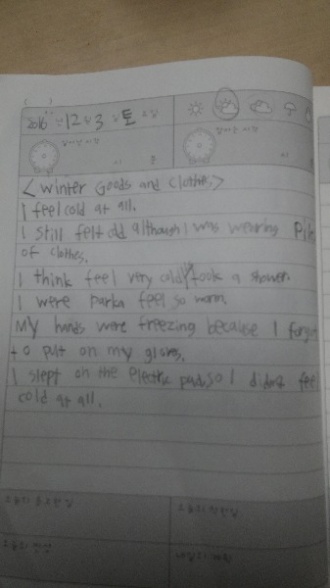 2016 년 12 월 3 일 토 요일
일어난 시각
시 분
<Winter Goods and Clothes>
I feel cold at all.
I still felt cold although I was wearing Pile
of clothes.
I think feel very cold took a shower.
I were Parka feel so warm.
My hands were freezing because I forgot
to put on my gloves.
I slept on the electric pad, so I didn't feel
cold at all.